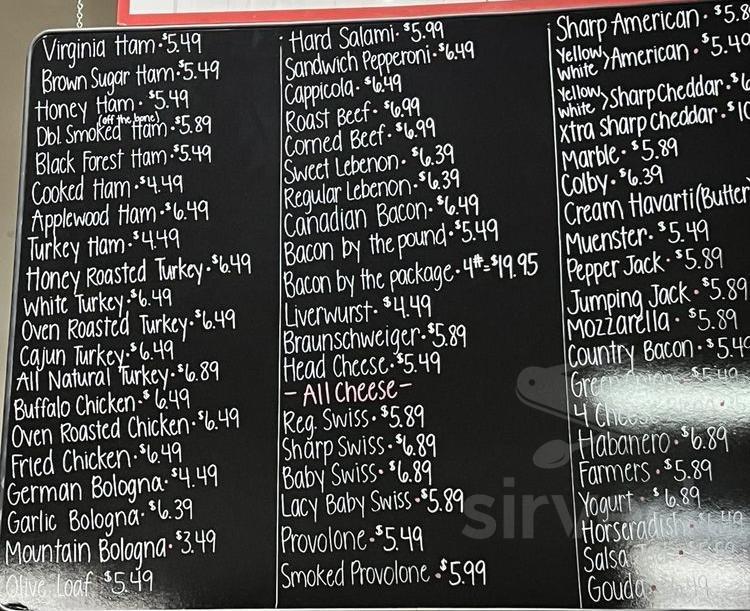 Virginia Ham • $5.49
Brown Sugar Ham • $5.49
Honey Ham • $5.49
(off the bone)
Dbl. Smoked Ham • $5.89
Black Forest Ham • $5.49
Cooked Ham • $4.49
Applewood Ham • $6.49
Turkey Ham • $4.49
Honey Roasted Turkey • $6.49
White Turkey • $6.49
Oven Roasted Turkey • $6.49
Cajun Turkey • $6.49
All Natural Turkey • $6.89
Buffalo Chicken • $6.49
Oven Roasted Chicken • $6.49
Fried Chicken • $6.49
German Bologna • $4.49
Garlic Bologna • $6.39
Mountain Bologna • $3.49
Olive Loaf • $5.49
Hard Salami • $5.99
Sandwich Pepperoni • $6.49
Cappicola • $6.49
Roast Beef • $6.99
Corned Beef • $6.99
Sweet Lebenon • $6.39
Regular Lebenon • $6.39
Canadian Bacon • $6.49
Bacon by the pound • $5.49
Bacon by the package • 4# = $19.95
Liverwurst • $4.49
Braunschweiger • $5.89
Head Cheese • $5.49
- All Cheese -
Reg. Swiss • $5.89
Sharp Swiss • $6.89
Baby Swiss • $6.89
Lacy Baby Swiss • $5.89
Provolone • $5.49
Smoked Provolone • $5.99
Sharp American • $5.8
Yellow White > American • $5.49
Yellow White > Sharp Cheddar • $6
xtra sharp cheddar • $1
Marble • $5.89
Colby • $6.39
Cream Havarti (Butter
Muenster • $5.49
Pepper Jack • $5.89
Jumping Jack • $5.89
Mozzarella • $5.89
Country Bacon • $5.49
Green $5.49
4 Cheese
Habanero • $6.89
Farmers • $5.89
Yogurt • $6.89
Horseradish
Salsa
Gouda